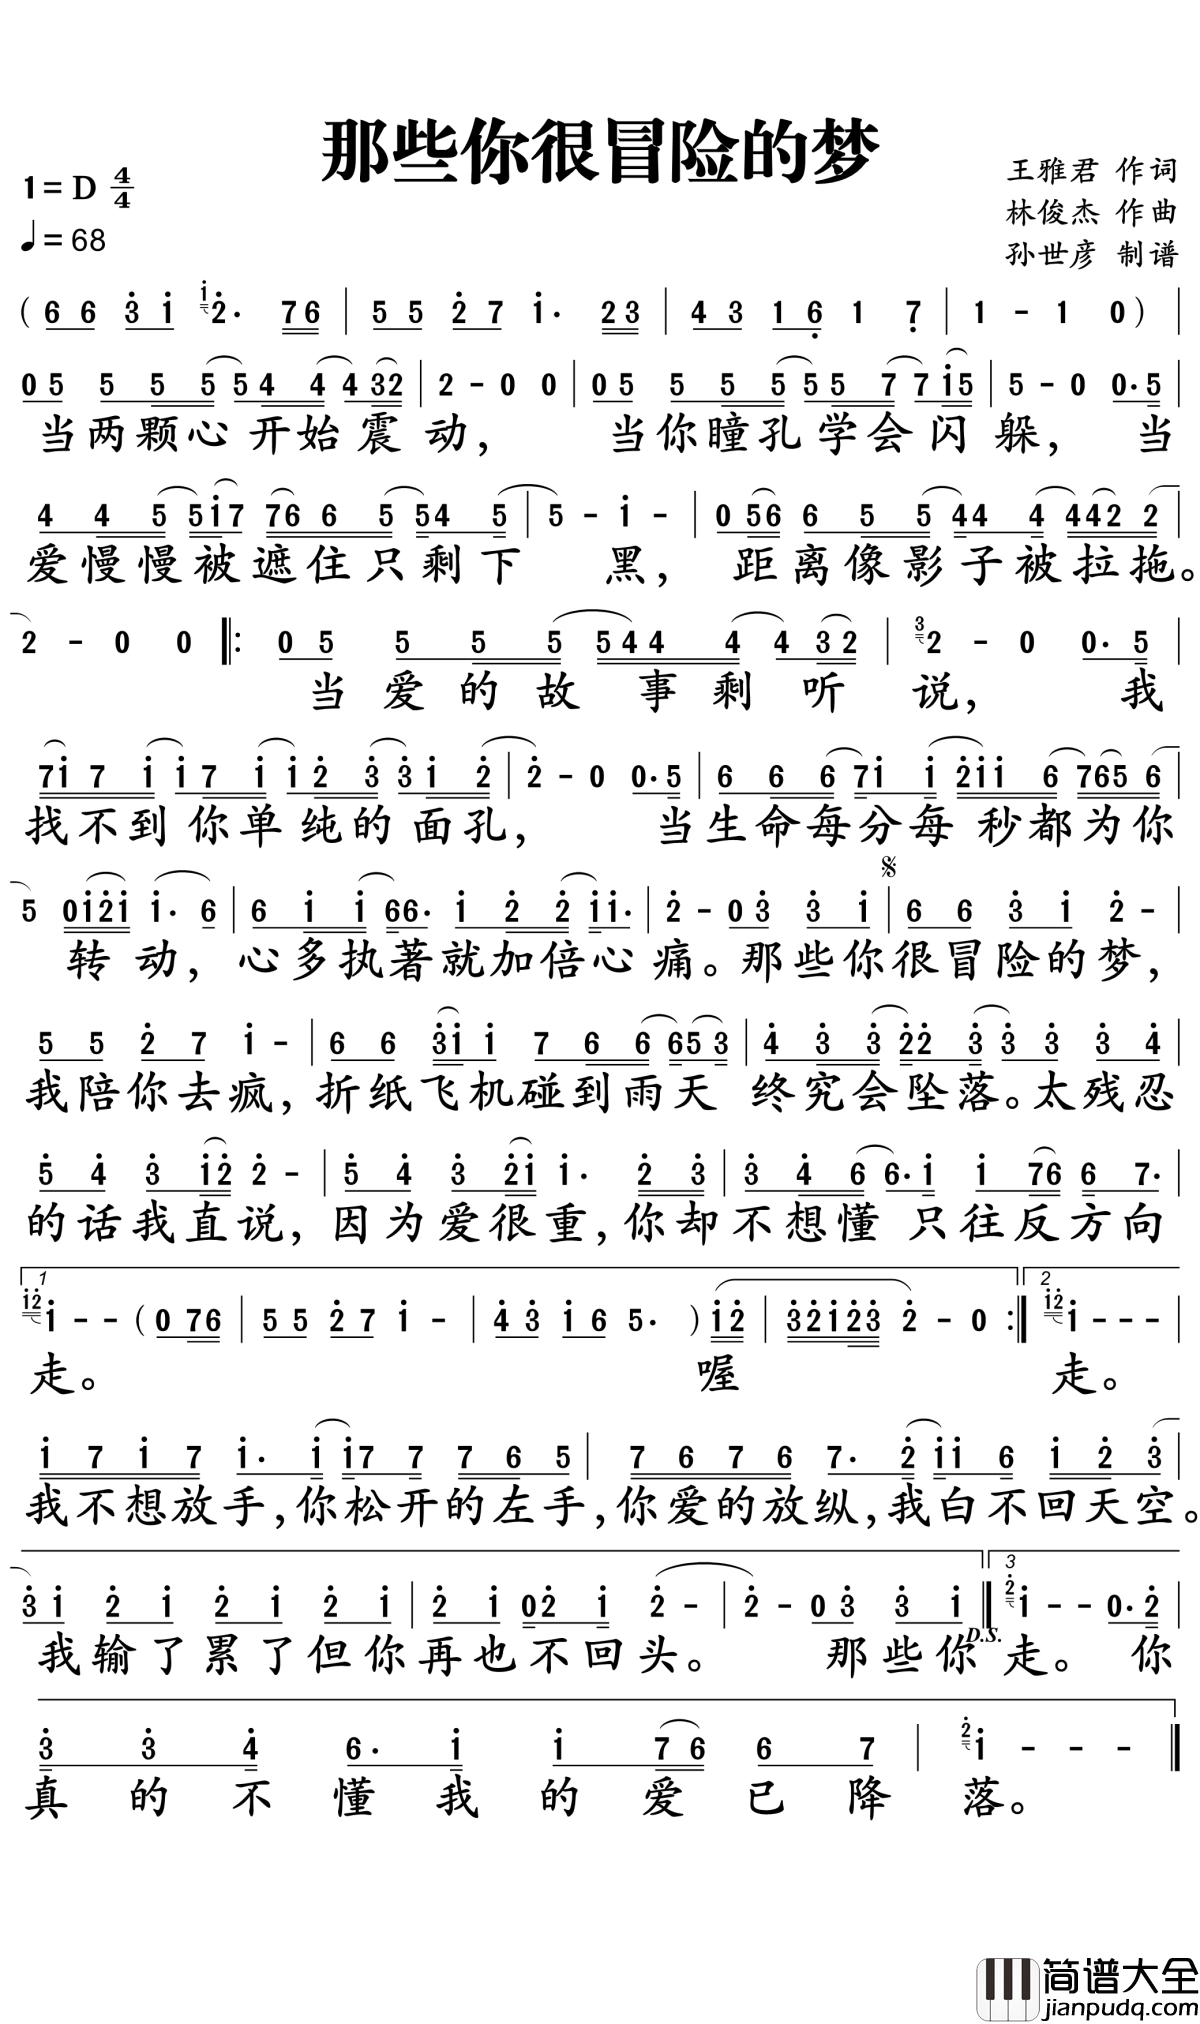 那些你很冒险的梦
1=D 4/4
♩=68
王雅君 作词
林俊杰 作曲
孙世彦 制谱
(6 6 3 1 1 2. 7 6 | 5 5 2 7 1. 2 3 | 4 3 1 6 1 7 | 1 - 1 0) |
0 5 5 5 5 5 4 4 4 3 2 | 2 - 0 0 | 0 5 5 5 5 5 5 7 7 1 5 | 5 - 0 0. 5 |
当两颗心开始震动，当你瞳孔学会闪躲，当
4 4 5 5 1 7 7 6 6 5 5 4 5 | 5 - 1 - | 0 5 6 6 5 5 4 4 4 4 4 2 2 |
爱慢慢被遮住只剩下黑，距离像影子被拉拖。
2 - 0 0 |: 0 5 5 5 5 5 4 4 4 4 3 2 | 3 2 - 0 0. 5 |
当爱的故事剩听说，我
7 1 7 1 1 7 1 1 2 3 3 1 2 | 2 - 0 0. 5 | 6 6 6 7 1 1 2 1 1 6 7 6 5 6 |
找不到你单纯的面孔，当生命每分每秒都为你
5 0 1 2 1 1. 6 | 6 1 1 6 6. 1 2 2 1 1. | 2 - 0 3 3 1 | 6 6 3 1 2 - |
转动，心多执著就加倍心痛。那些你很冒险的梦，
5 5 2 7 1 - | 6 6 3 1 1 7 6 6 6 5 3 | 4 3 3 2 2 3 3 3 3 4 |
我陪你去疯，折纸飞机碰到雨天 终究会坠落。太残忍
5 4 3 1 2 2 - | 5 4 3 2 1 1. 2 3 | 3 4 6 6. 1 1 7 6 6 7. |
的话我直说，因为爱很重，你却不想懂 只往反方向
1 2
1 2 1 - - (0 7 6 | 5 5 2 7 1 - | 4 3 1 6 5. ) 1 2 | 3 2 1 2 3 2 - 0 :| 1 2 1 - - - |
走。 喔 走。
1 7 1 7 1. 1 1 7 7 7 6 5 | 7 6 7 6 7. 2 1 1 6 1 2 3 |
我不想放手，你松开的左手，你爱的放纵，我白不回天空。
3
3 1 2 1 2 1 2 1 | 2 1 0 2 1 2 - | 2 - 0 3 3 1 | 2 1 - - 0. 2 |
D.S.
我输了累了但你再也不回头。 那些你走。 你
3 3 4 6. 1 1 7 6 6 7 | 2 1 - - - |
真的不懂我的爱已降落。
简谱大全
jianpudq.com